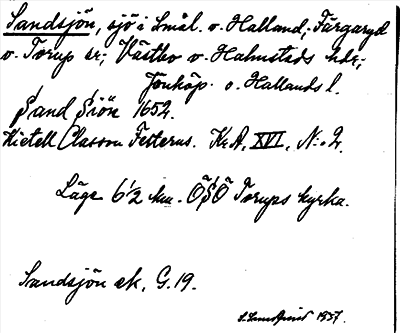 Sandsjön, sjö i Smål. o. Halland, Färgaryd
o. Torup sr; Västbo o. Halmstads hdr;
Jönköp. o. Hallands l.
Sand Siön 1652.
Kietell Classon Felterus. K.A. XVI. N:o 2.
Läge 6 1/2 km. ÖSÖ Torups kyrka.
Sandsjön ek. G. 19.
1937.